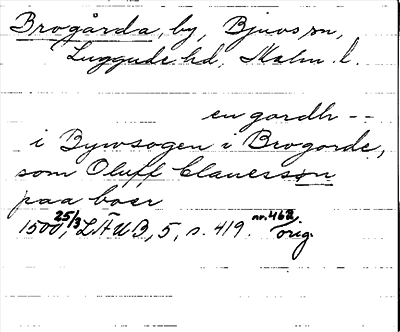 Brogårda, by, Bjuvs sn,
Luggude hd, Malm. l.
en gordh --
i Bywsogen i Brogorde,
som Oluff Clauersson
paa boer
1500 25/3, LÄUB, 5, s. 419. nr. 462 orig.